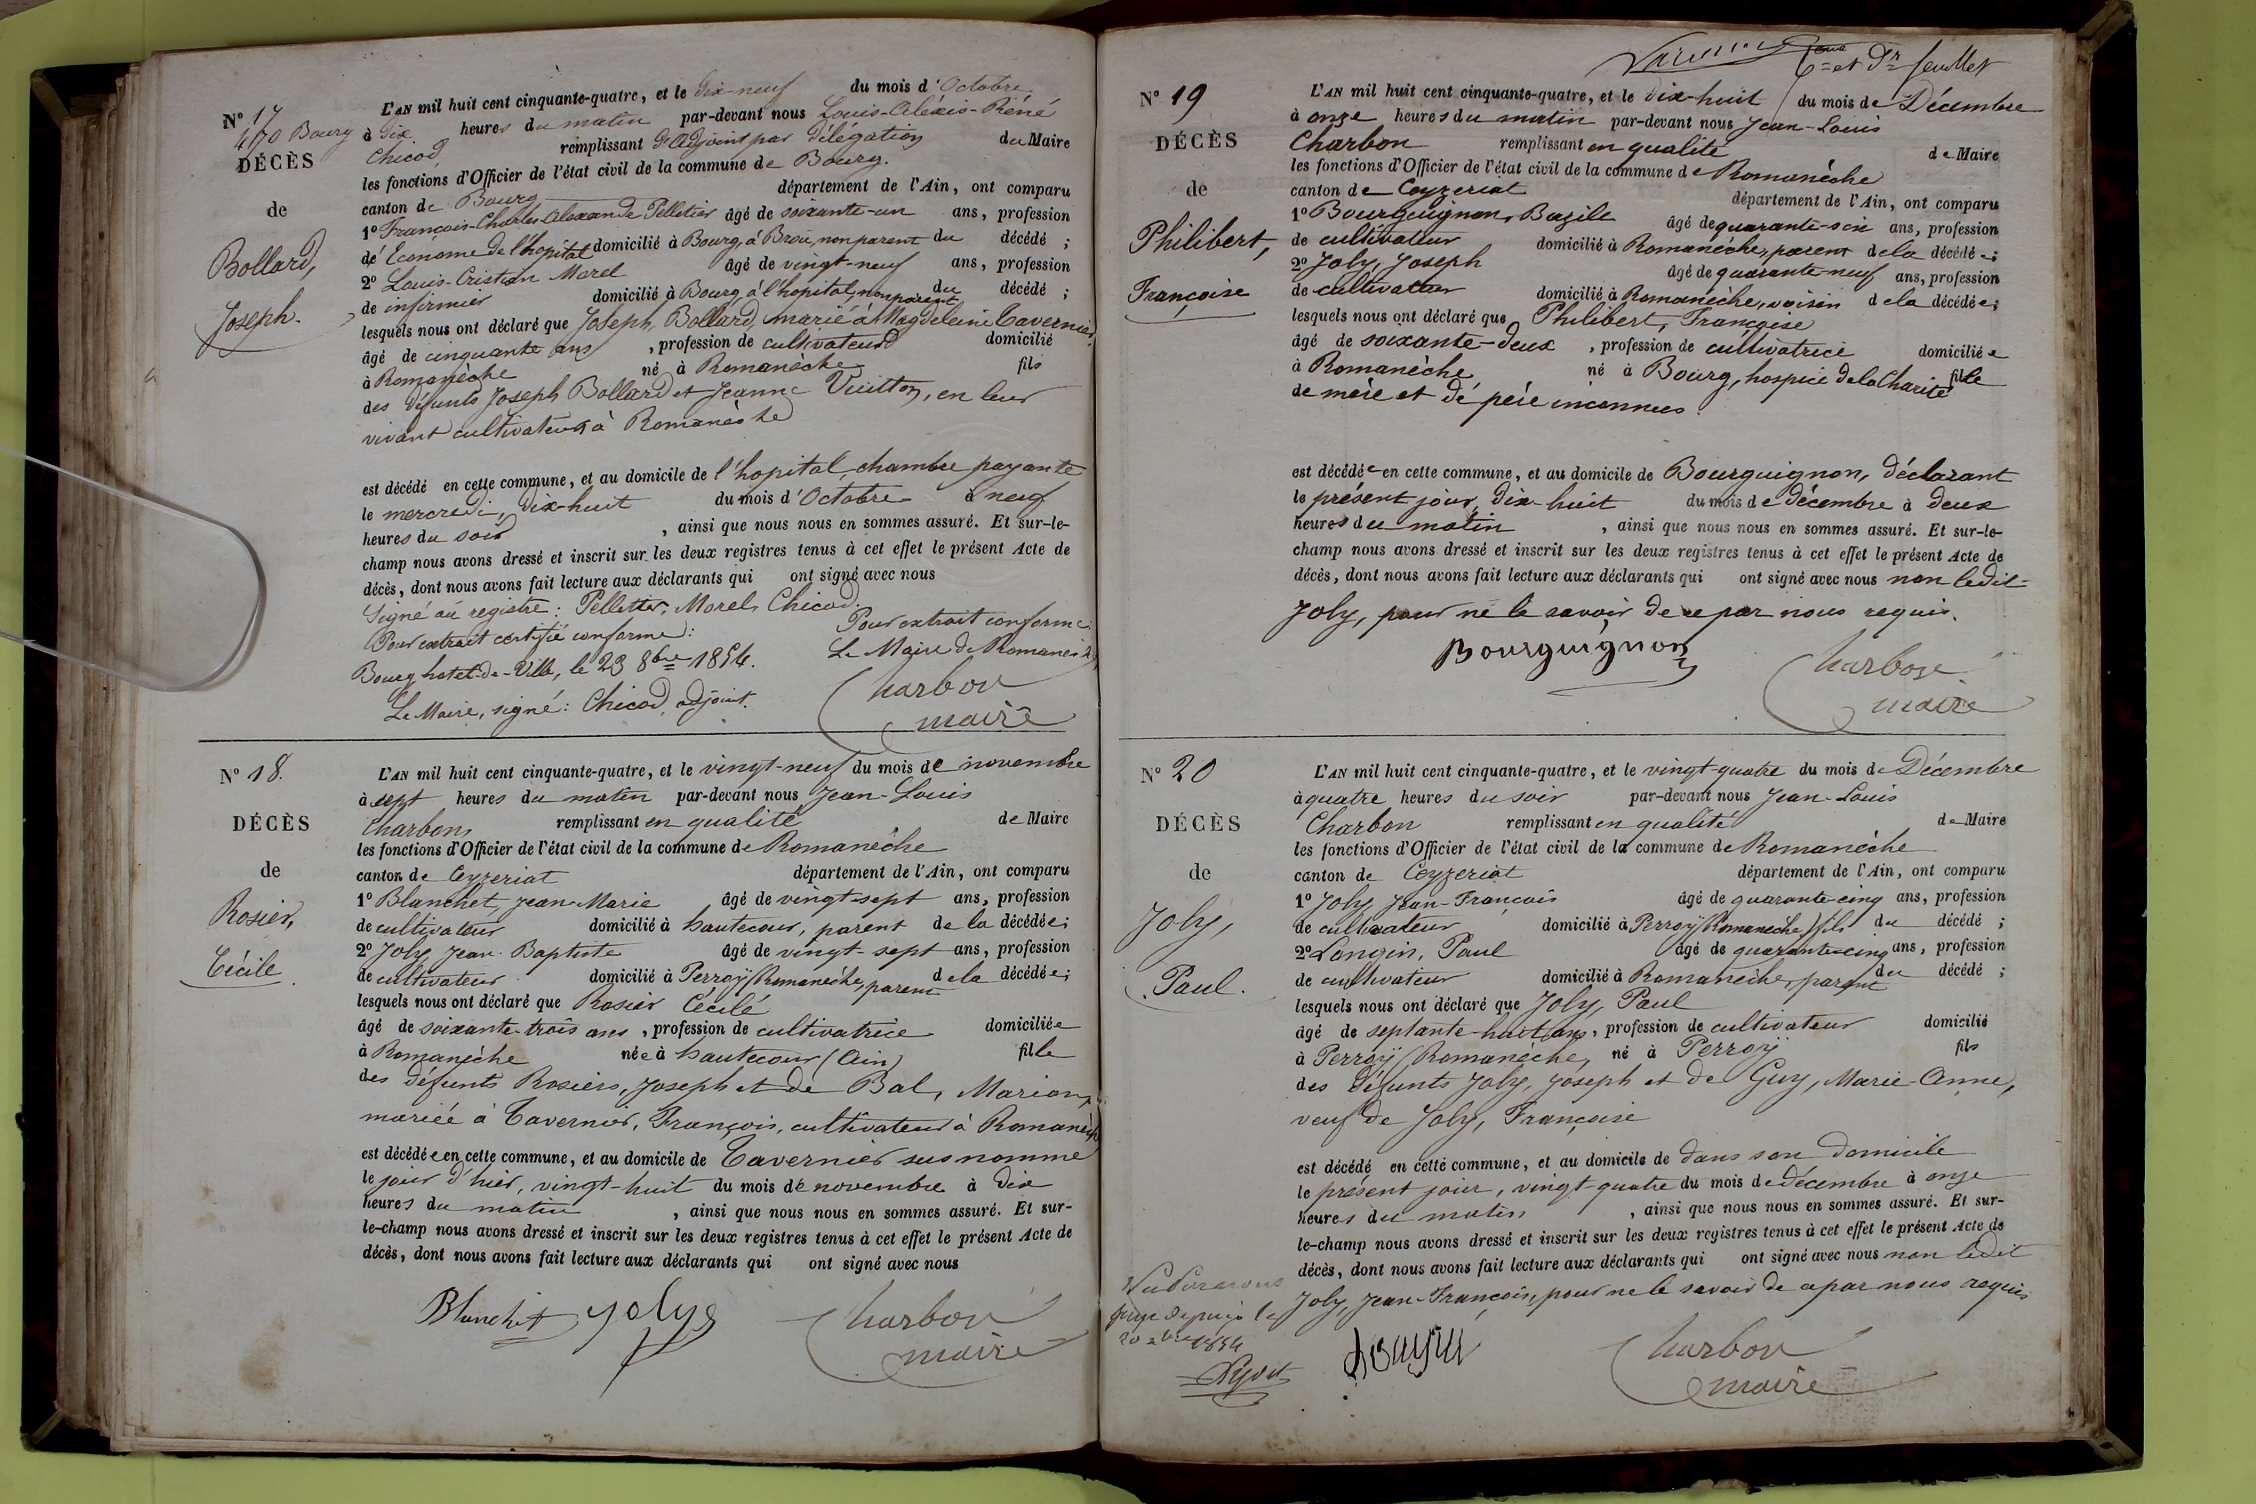 N° 17
470 Bourg
DÉCÈS
de
Bollard,
Joseph.
L'AN mil huit cent cinquante-quatre, et le dix-neuf du mois d'Octobre
à dix heures du matin par-devant nous Louis-Aléxis-Réné
Chicod remplissant d'adjoint par délégation du Maire
les fonctions d'Officier de l'état civil de la commune de Bourg.
canton de Bourg département de l'Ain, ont comparu
1° François-Charles-Alexandre Pelletier âgé de soixante-un ans, profession
d'Econome de l'hopital domicilié à Bourg, à Brou, non parent du décédé ;
2° Louis-Cristian Morel âgé de vingt-neuf ans, profession
de infirmier domicilié à Bourg, à l'hopital, non parent du décédé ;
lesquels nous ont déclaré que Joseph, Bollard, marié à Magdeleine Tavernier,
âgé de cinquante ans, profession de cultivateur domicilié
à Romanèche né à Romanèche fils
des défunts Joseph Bollard et Jeanne Vuitton, en leur
vivant cultivateurs à Romanèche
est décédé en cette commune, et au domicile de l'hopital, chambre payante
le mercredi, dix-huit du mois d'Octobre à neuf
heures du soir, ainsi que nous nous en sommes assuré. Et sur-le-
champ nous avons dressé et inscrit sur les deux registres tenus à cet effet le présent Acte de
décès, dont nous avons fait lecture aux déclarants qui ont signé avec nous
Signé au registre : Pelletier, Morel, Chicod.
Pour extrait certifié conforme :
Bourg hotel-de-Ville, le 23 8bre 1854.
Le Maire, signé : Chicod, adjoint.
Pour extrait conforme
Le Maire de Romanèche
Charbon
maire
N° 18.
DÉCÈS
de
Rosier,
Cécile
L'AN mil huit cent cinquante-quatre, et le vingt-neuf du mois de novembre
à sept heures du matin par-devant nous Jean-Louis
Charbon, remplissant en qualité de Maire
les fonctions d'Officier de l'état civil de la commune de Romanèche
canton de Ceyzeriat département de l'Ain, ont comparu
1° Blanchet, Jean-Marie âgé de vingt-sept ans, profession
de cultivateur domicilié à hautecour, parent de la décédée ;
2° Joly, Jean-Baptiste âgé de vingt-sept ans, profession
de cultivateur domicilié à Perroÿ (Romanèche), parent de la décédée ;
lesquels nous ont déclaré que Rosier Cécile
âgé de soixante-trois ans, profession de cultivatrice domiciliée
à Romanèche née à hautecour (Ain) fille
des défunts Rosiers, Joseph et de Bal, Marion,
mariée à Tavernier, François, cultivateur à Romanèche
est décédée en cette commune, et au domicile de Tavernier susnommé
le jour d'hier, vingt-huit du mois de novembre à dix
heures du matin, ainsi que nous nous en sommes assuré. Et sur-
le-champ nous avons dressé et inscrit sur les deux registres tenus à cet effet le présent Acte de
décès, dont nous avons fait lecture aux déclarants qui ont signé avec nous
Blanchet Joly Charbon
maire
6ème et dr feuillet
N° 19
DÉCÈS
de
Philibert,
Françoise
L'AN mil huit cent cinquante-quatre, et le dix-huit du mois de Décembre
à onze heures du matin par-devant nous Jean-Louis
Charbon remplissant en qualité de Maire
les fonctions d'Officier de l'état civil de la commune de Romanèche
canton de Ceyzeriat département de l'Ain, ont comparu
1° Bourguignon, Bazile âgé de quarante-six ans, profession
de cultivateur domicilié à Romanèche, parent de la décédée ;
2° Joly, Joseph âgé de quarante-neuf ans, profession
de cultivateur domicilié à Romanèche, voisin de la décédée ;
lesquels nous ont déclaré que Philibert, Françoise
âgé de soixante-deux, profession de cultivatrice domiciliée
à Romanèche né à Bourg, hospice de la Charité fille
de mère et de père inconnues.
est décédée en cette commune, et au domicile de Bourguignon, déclarant
le présent jour, dix-huit du mois de décembre à deux
heures du matin, ainsi que nous nous en sommes assuré. Et sur-le-
champ nous avons dressé et inscrit sur les deux registres tenus à cet effet le présent Acte de
décès, dont nous avons fait lecture aux déclarants qui ont signé avec nous non ledit
Joly, pour ne le savoir de ce par nous requis.
Bourguignon
Charbon
maire
N° 20
DÉCÈS
de
Joly,
Paul.
L'AN mil huit cent cinquante-quatre, et le vingt-quatre du mois de Décembre
à quatre heures du soir par-devant nous Jean-Louis
Charbon remplissant en qualité de Maire
les fonctions d'Officier de l'état civil de la commune de Romanèche
canton de Ceyzeriat département de l'Ain, ont comparu
1° Joly, Jean-François âgé de quarante-cinq ans, profession
de cultivateur domicilié à Perroÿ (Romanèche) fils du décédé ;
2° Longin, Paul âgé de quarante-cinq ans, profession
de cultivateur domicilié à Romanèche, parent du décédé ;
lesquels nous ont déclaré que Joly, Paul
âgé de septante-huit ans, profession de cultivateur domicilié
à Perroÿ (Romanèche) né à Perroÿ fils
des défunts Joly, Joseph et de Guy, Marie-Anne,
veuf de Joly, Françoise
est décédé en cette commune, et au domicile de dans son domicile
le présent jour, vingt-quatre du mois de décembre à onze
heures du matin, ainsi que nous nous en sommes assuré. Et sur-
le-champ nous avons dressé et inscrit sur les deux registres tenus à cet effet le présent Acte de
décès, dont nous avons fait lecture aux déclarants qui ont signé avec nous non ledit
Joly, Jean-François, pour ne le savoir de ce par nous requis
Charbon
maire